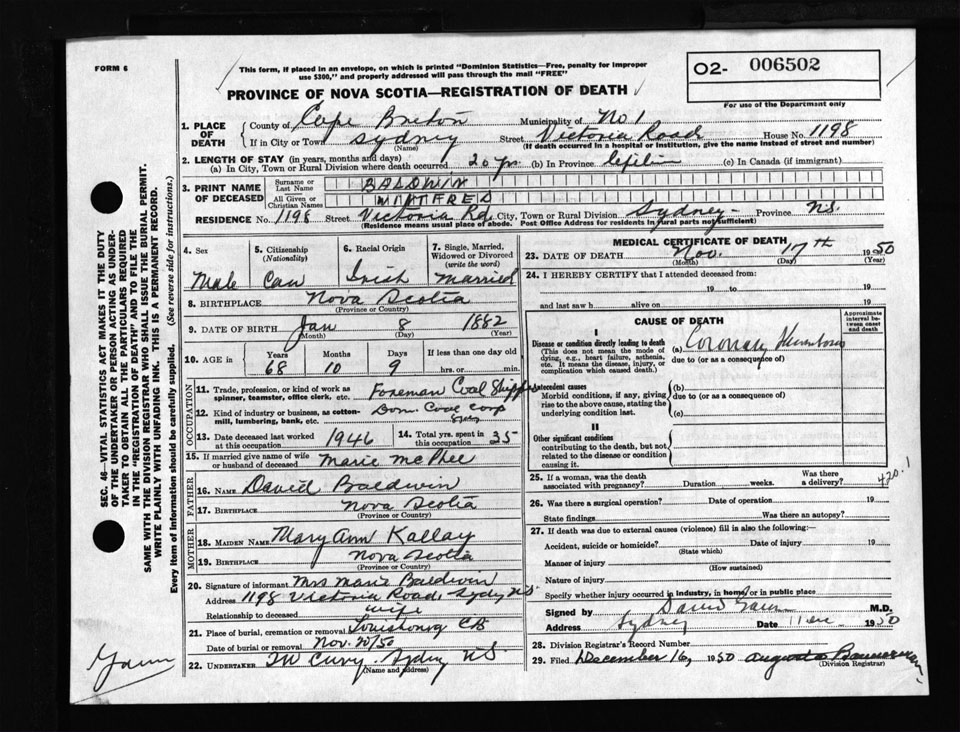 FORM 6
This form, if placed in an envelope, on which is printed "Dominion Statistics—Free, penalty for improper
use $300," and properly addressed will pass through the mail "FREE"
O2- 006502
For use of the Department only
PROVINCE OF NOVA SCOTIA—REGISTRATION OF DEATH
1. PLACE OF DEATH County of Cape Breton Municipality of No 1
If in City or Town Sydney (Name) Street Victoria Road House No. 1198
(If death occurred in a hospital or institution, give the name instead of street and number)
2. LENGTH OF STAY (in years, months and days)
(a) In City, Town or Rural Division where death occurred 20 yrs. (b) In Province Lifetime (c) In Canada (if immigrant)
3. PRINT NAME OF DECEASED Surname or Last Name BALDWIN
All Given or Christian Names WINIFRED
RESIDENCE No. 1198 Street Victoria Rd. City, Town or Rural Division Sydney Province N.S.
(Residence means usual place of abode. Post Office Address for residents in rural parts not sufficient)
4. Sex 5. Citizenship (Nationality) 6. Racial Origin 7. Single, Married, Widowed or Divorced (write the word)
Male Can Irish Married
8. BIRTHPLACE Nova Scotia
(Province or Country)
9. DATE OF BIRTH Jan 8 1882
(Month) (Day) (Year)
10. AGE in Years Months Days If less than one day old
68 10 9 hrs. or min.
OCCUPATION
11. Trade, profession, or kind of work as spinner, teamster, office clerk, etc. Foreman Coal Shipper
12. Kind of industry or business, as cotton-mill, lumbering, bank, etc. Dom Coal Corp
13. Date deceased last worked at this occupation 1946 14. Total yrs. spent in this occupation 35
15. If married give name of wife or husband of deceased Marie McPhee
FATHER
16. NAME David Baldwin
17. BIRTHPLACE Nova Scotia
(Province or Country)
MOTHER
18. MAIDEN NAME Mary Ann Kallay
19. BIRTHPLACE Nova Scotia
(Province or Country)
20. Signature of informant Mrs Marie Baldwin
Address 1198 Victoria Road, Sydney N.S.
Relationship to deceased wife
21. Place of burial, cremation or removal Louisbourg CB
Date of burial or removal Nov. 20/50
22. UNDERTAKER TW Curry. Sydney N.S.
(Name and address)
MEDICAL CERTIFICATE OF DEATH
23. DATE OF DEATH Nov. 17th 1950
(Month) (Day) (Year)
24. I HEREBY CERTIFY that I attended deceased from:
19 to 19
and last saw h alive on 19
CAUSE OF DEATH
Approximate interval between onset and death
I
Disease or condition directly leading to death (a) Coronary Thrombosis
(This does not mean the mode of dying, e.g., heart failure, asthenia, etc. It means the disease, injury, or complication which caused death.) due to (or as a consequence of)
Antecedent causes (b)
Morbid conditions, if any, giving rise to the above cause, stating the underlying condition last. due to (or as a consequence of)
(c)
II
Other significant conditions
contributing to the death, but not related to the disease or condition causing it.
25. If a woman, was the death associated with pregnancy? Duration weeks. Was there a delivery?
420.1
26. Was there a surgical operation? Date of operation 19
State findings Was there an autopsy?
27. If death was due to external causes (violence) fill in also the following:—
Accident, suicide or homicide? Date of injury 19
(State which)
Manner of injury
(How sustained)
Nature of injury
Specify whether injury occurred in industry, in home or in public place
Signed by M.D.
Address Sydney Date 11 Dec 1950
28. Division Registrar's Record Number
29. Filed December 16, 1950 Augusta
(Division Registrar)
SEC. 46—VITAL STATISTICS ACT MAKES IT THE DUTY
OF THE UNDERTAKER OR PERSON ACTING AS UNDER-
TAKER TO OBTAIN ALL THE PARTICULARS REQUIRED
IN THE "REGISTRATION OF DEATH" AND TO FILE THE
SAME WITH THE DIVISION REGISTRAR WHO SHALL ISSUE THE BURIAL PERMIT.
WRITE PLAINLY WITH UNFADING INK. THIS IS A PERMANENT RECORD.
Every item of information should be carefully supplied. (See reverse side for instructions.)